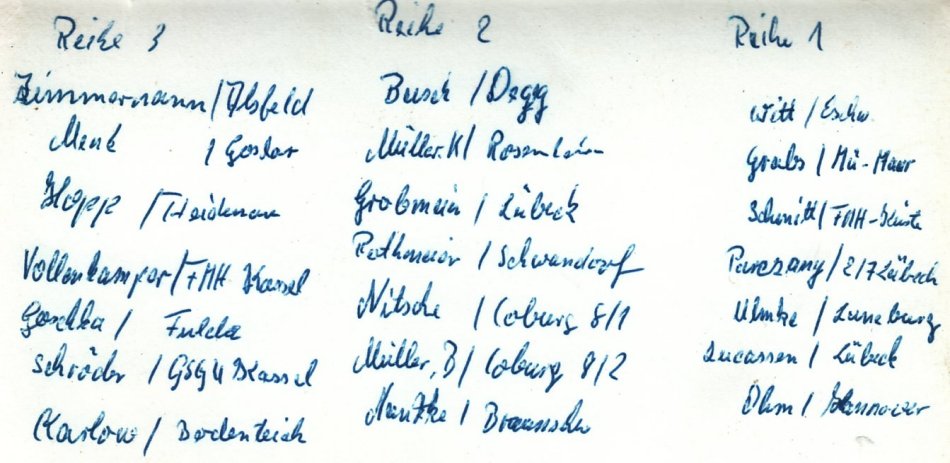 Reihe 3
Zimmermann / Alsfeld
Menk / Goslar
Hopp /
Vollenkamper / FMH Kassel
Goschka / Fulda
Schröder / GSGU Kassel
Karlow / Bodenteich
Reihe 2
Busch / Degg
Müller. K / Rosenheim
Grobmein / Lübeck
Rothmeier / Schwandorf
Nitsche / Coburg 8/1
Müller, B / Coburg 8/2
Nantke / Braunschw
Reihe 1
Witt / Eschw.
Grabs / Mü-Maer
Schmitt / FMH-Küste
Parczany / 2/7 Lübeck
Ulmke / Luneburg
Lucassen / Lübeck
Ohm / Hannover